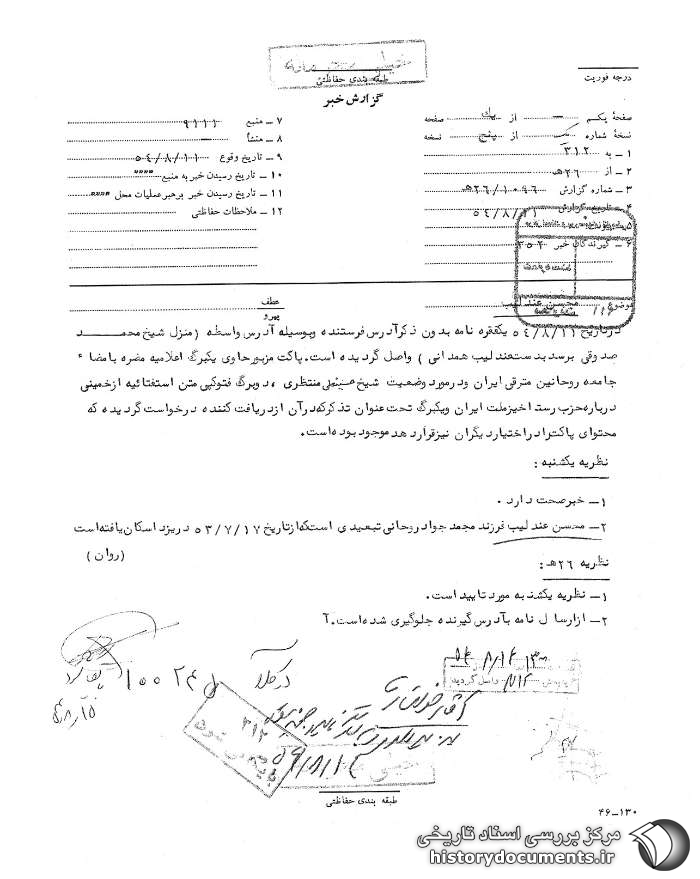 درجه فوریت
طبقه بندی حفاظتی
گزارش خبر
صفحهٔ یکم — از یک صفحه
نسخهٔ شماره یک از پنج نسخه
۱ـ به ۳۱۲
۲ـ از ۲۶هـ
۳ـ شماره گزارش ۲۶/۱۰۹۶هـ
۴ـ تاریخ گزارش ۵۴/۸/۲۱
۶ـ گیرندگان خبر ۳۵۲
۷ـ منبع ۹۱۱۱
۸ـ منشأ —
۹ـ تاریخ وقوع ۵۴/۸/۱۱
۱۰ـ تاریخ رسیدن خبر به منبع ״״״״
۱۱ـ تاریخ رسیدن خبر برهبر عملیات محل ״״״״
۱۲ـ ملاحظات حفاظتی
موضوع محسن عندلیب
عطف
پیرو
درتاریخ ۵۴/۸/۱۱ یکفقره نامه بدون ذکرآدرس فرستنده وبوسیله آدرس واسطه (منزل شیخ محمد
صدوقی برسد بدست عندلیب همدانی) واصل گردیده است. پاکت مزبورحاوی یکبرگ اعلامیه مضره بامضاء
جامعه روحانین مترقی ایران ودرمورد وضعیت شیخ حسینعلی منتظری، دوبرگ فتوکپی متن استفتائیه ازخمینی
درباره حزب رستاخیز ملت ایران ویکبرگ تحت عنوان تذکرکه درآن ازدریافت کننده درخواست گردیده که
محتوای پاکت رادراختیار دیگران نیزقرار دهد موجود بوده است.
نظریه یکشنبه:
۱ـ خبرصحت دارد.
۲ـ محسن عندلیب فرزند محمد جواد روحانی تبعیدی است که ازتاریخ ۵۳/۷/۱۷ دریزد اسکان یافته است
(روان)
نظریه ۲۶هـ:
۱ـ نظریه یکشنبه مورد تایید است.
۲ـ ازارسال نامه بآدرس گیرنده جلوگیری شده است. آ
طبقه بندی حفاظتی
۴۶ـ۱۳۰
مرکز بررسی اسناد تاریخی
historydocuments.ir